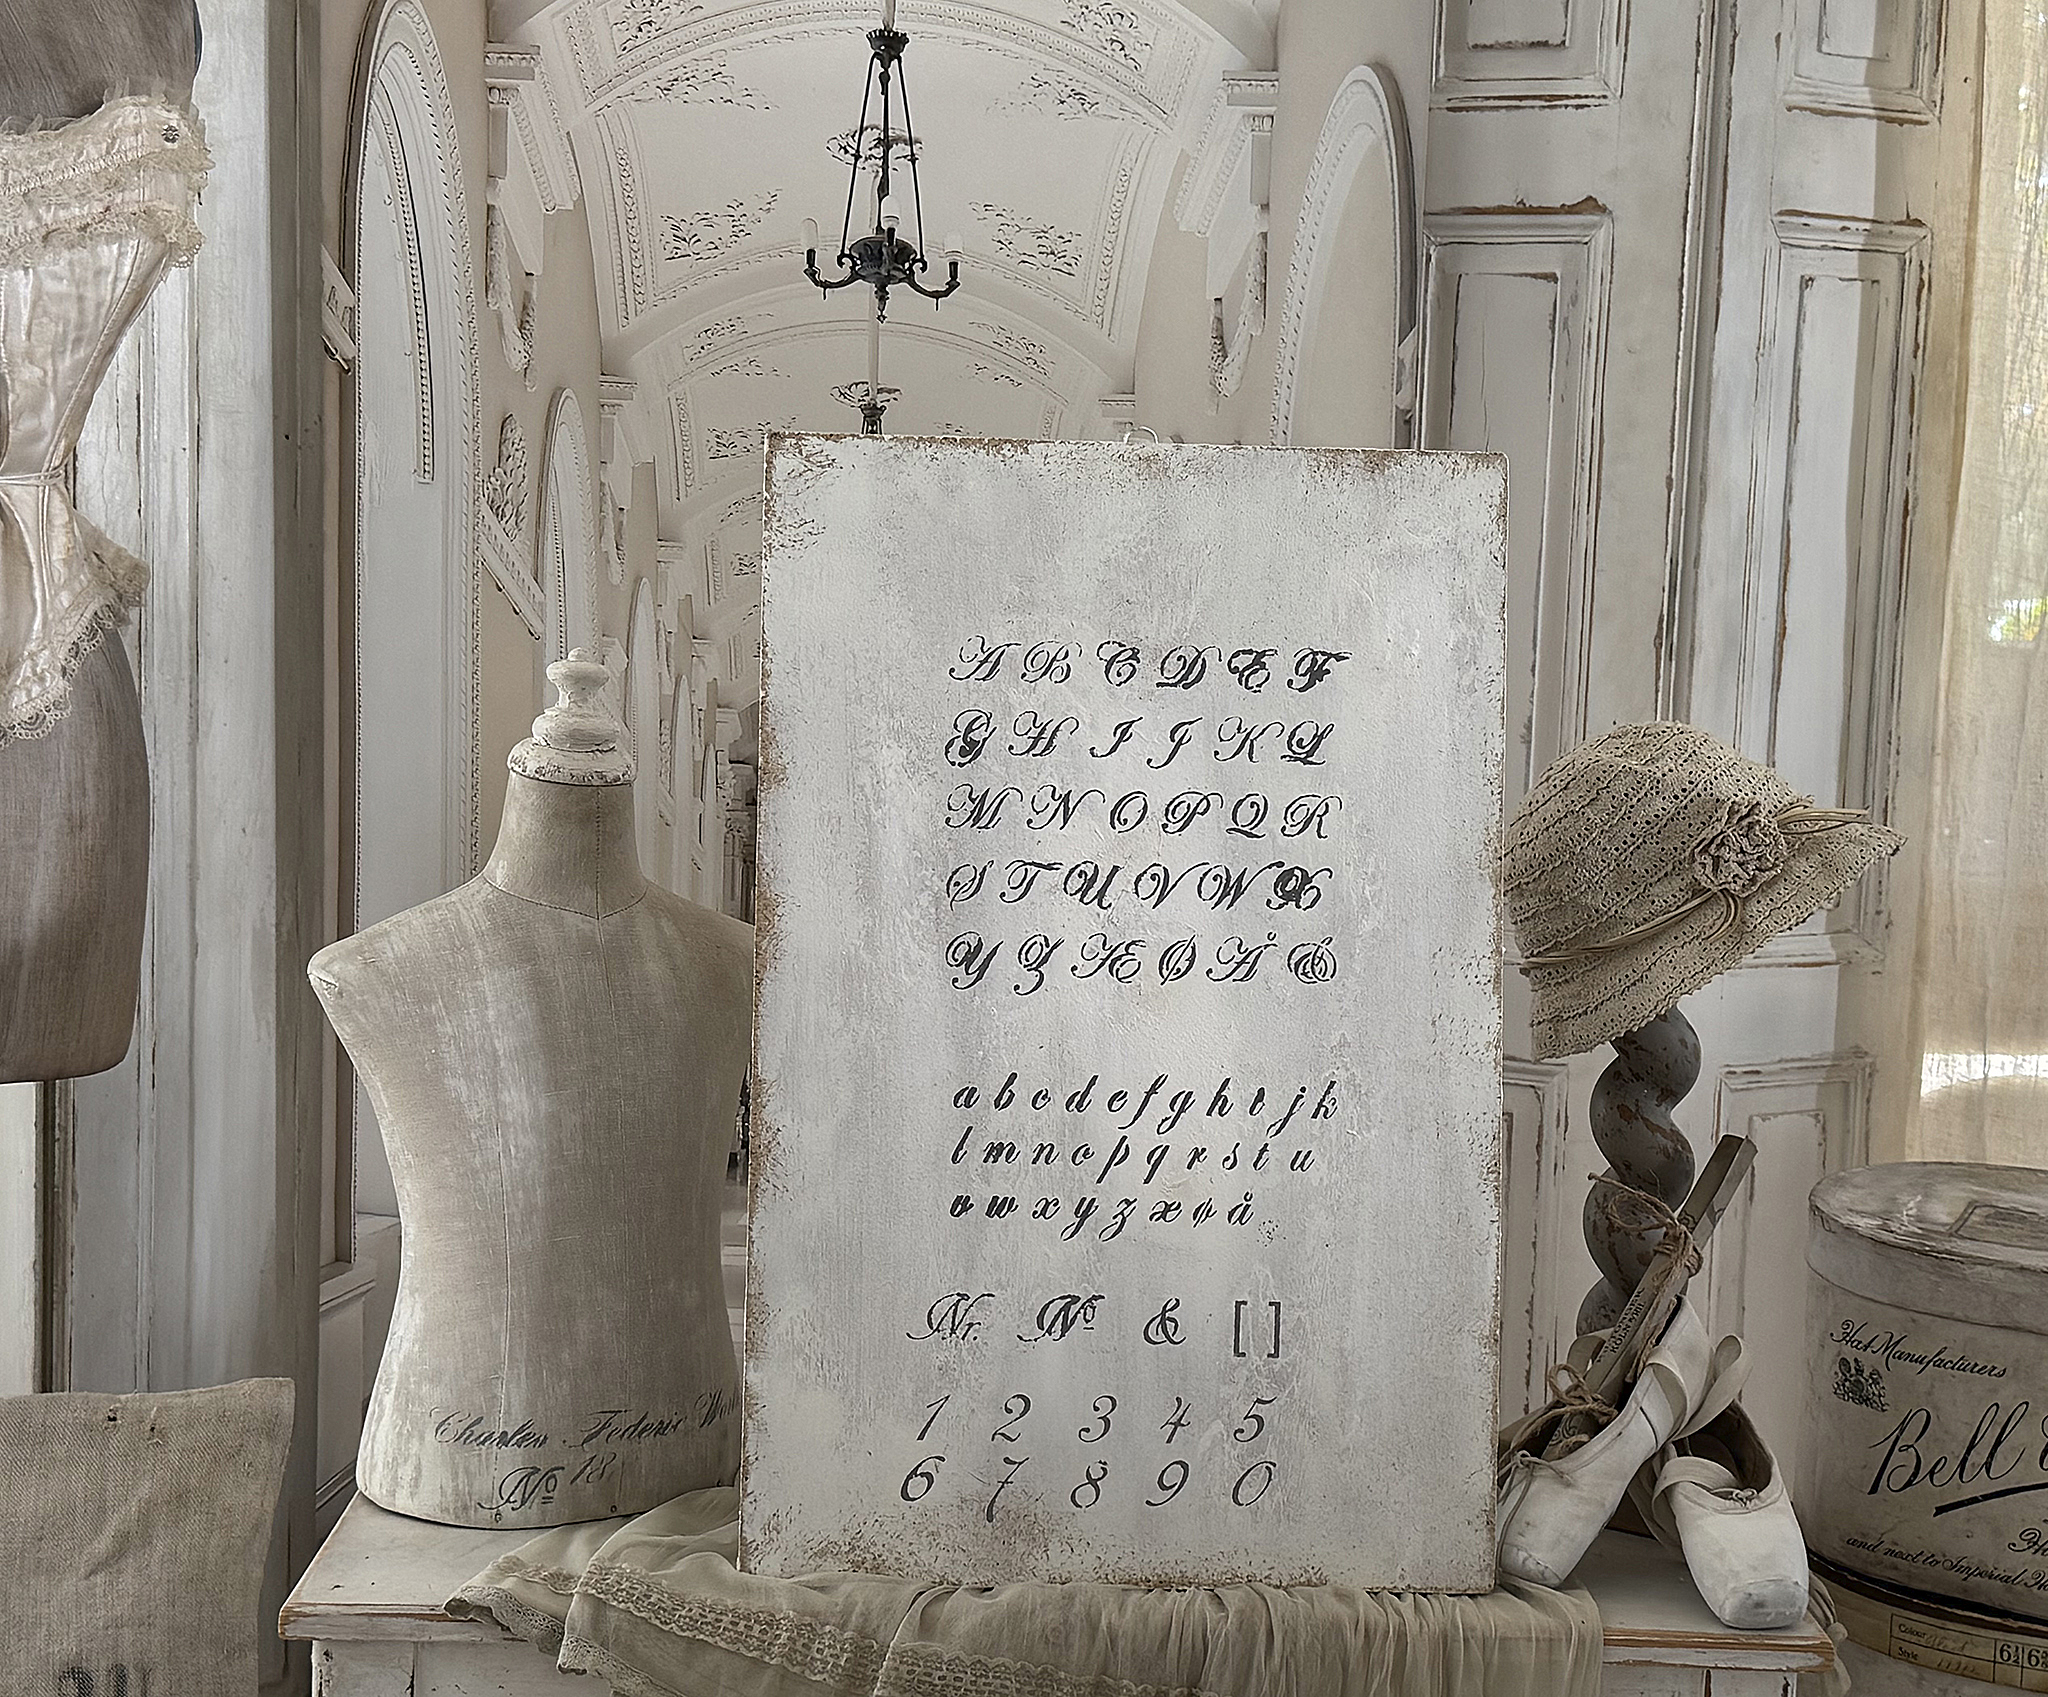 A B C D E F
G H I J K L
M N O P Q R
S T U V W X
Y Z Æ Ø Å &
a b c d e f g h i j k
l m n o p q r s t u
v w x y z æ ø å
Nr. Nº & [ ]
1 2 3 4 5
6 7 8 9 0
Charles Federic
Nº 18
Hat Manufacturers
Bell
and next to Imperial
Colour
Style